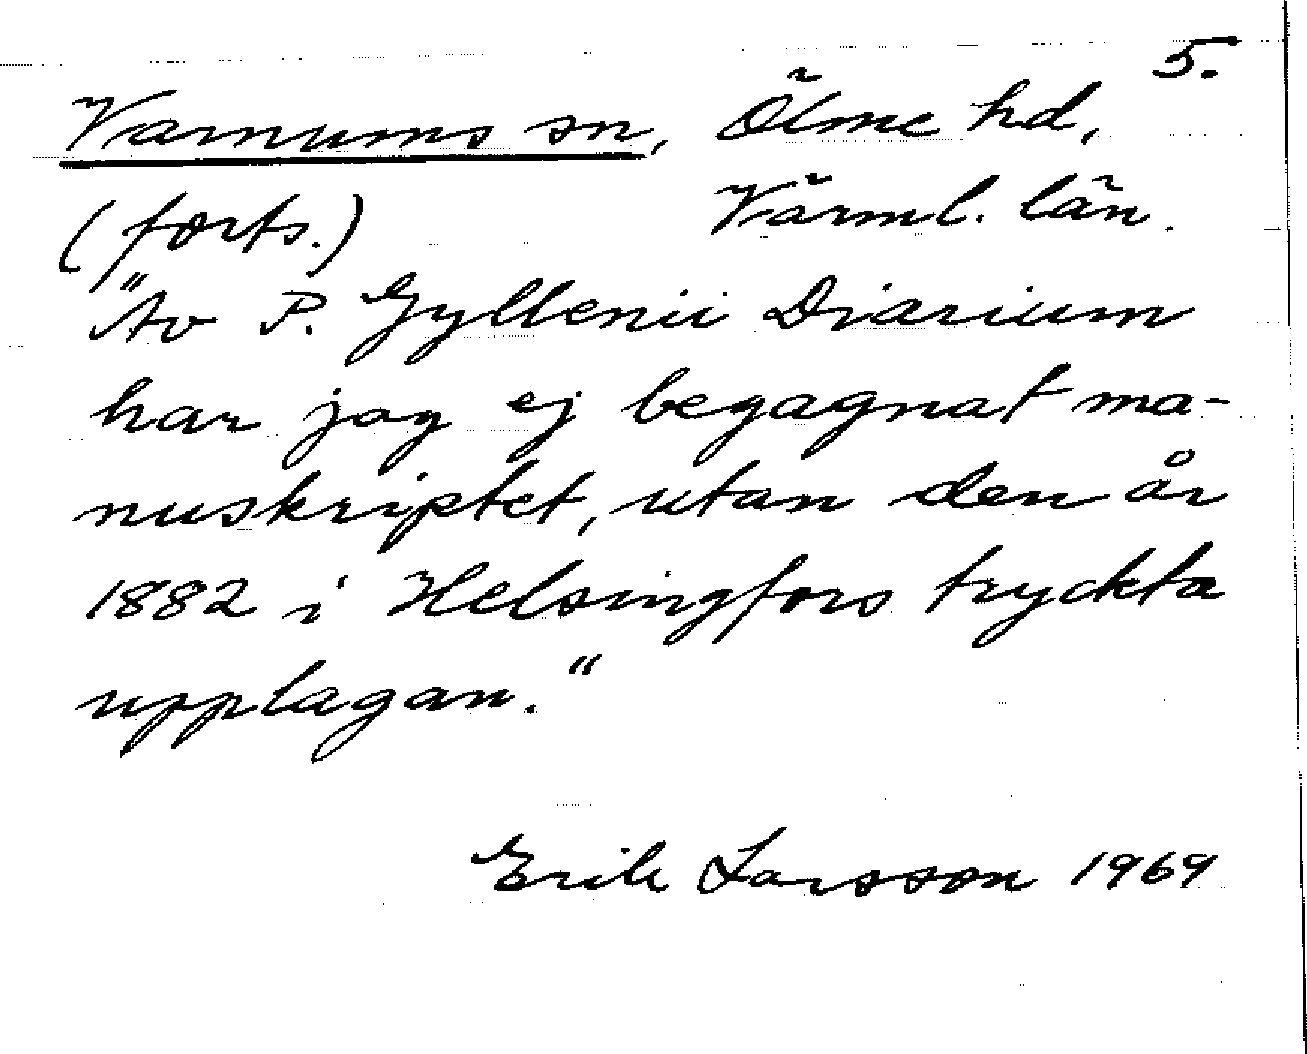 5.
Varnums sn, Ölme hd,
(forts.) Värml. län.
"Av P. Gyllenii Diarium
har jag ej begagnat ma-
nuskriptet, utan den år
1882 i Helsingfors tryckta
upplagan."
Erik Larsson 1969